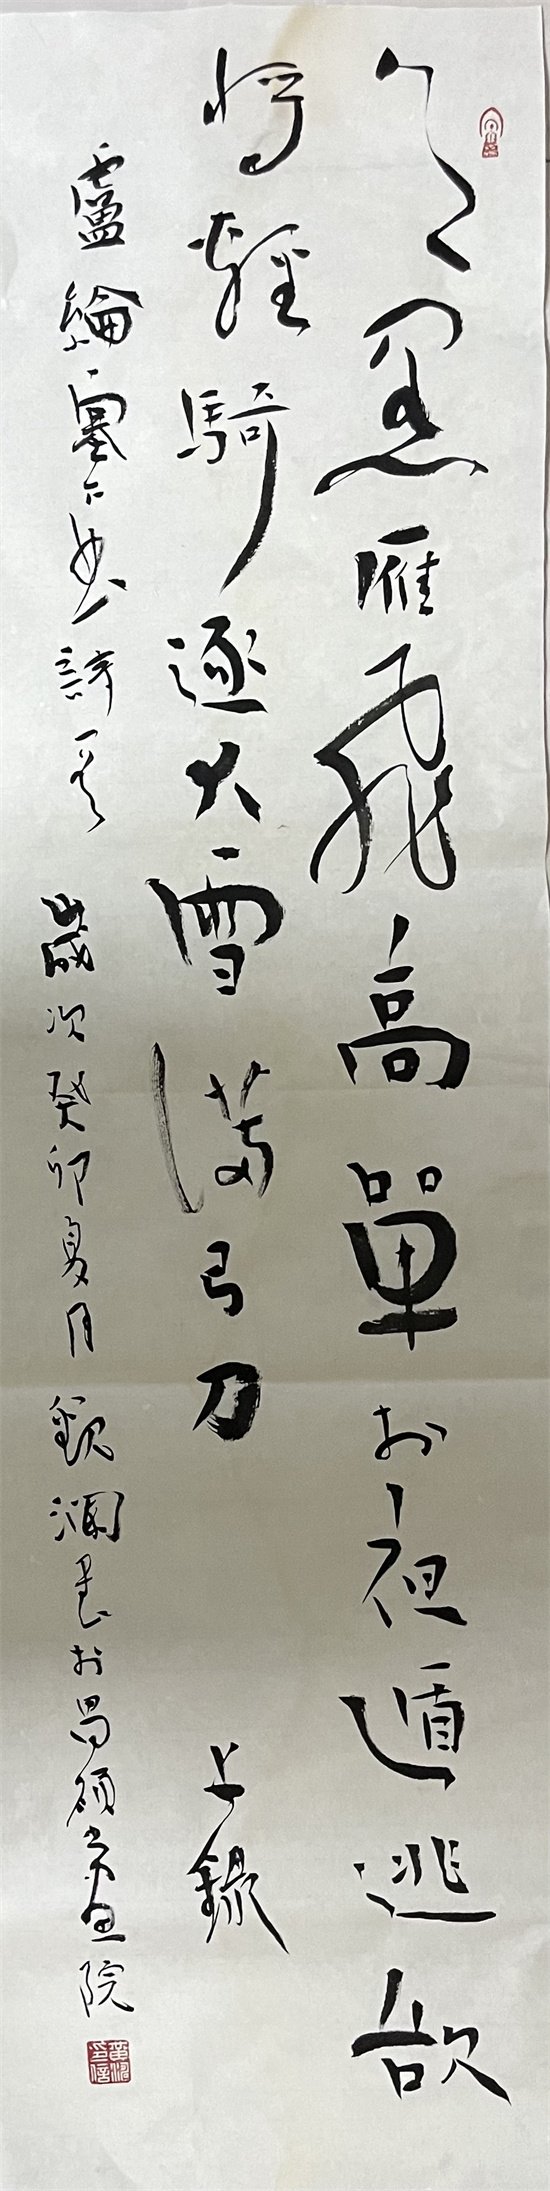 月黑雁飛高單于夜遁逃欲
將輕騎逐大雪滿弓刀 上錄
盧綸塞下曲詩一首 歲次癸卯夏月觀瀾書於昌碩書畫院